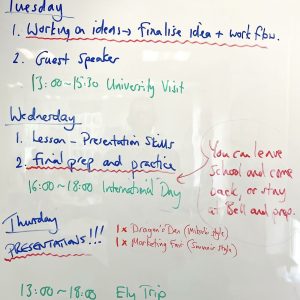 Tuesday
1. Working on ideas → finalise idea + workflow.
2. Guest Speaker
13:00 – 15:30 University Visit
Wednesday
1. Lesson – Presentation Skills
2. final prep and practice
16:00 – 18:00 International Day
You can leave
School and come
back, or stay
at Bell and prep.
Thursday
PRESENTATIONS!!!
1x Dragon's Den (Milan's style)
1x Marketing Fair (Souvenir Style)
13:00 – 18:00 Ely Trip